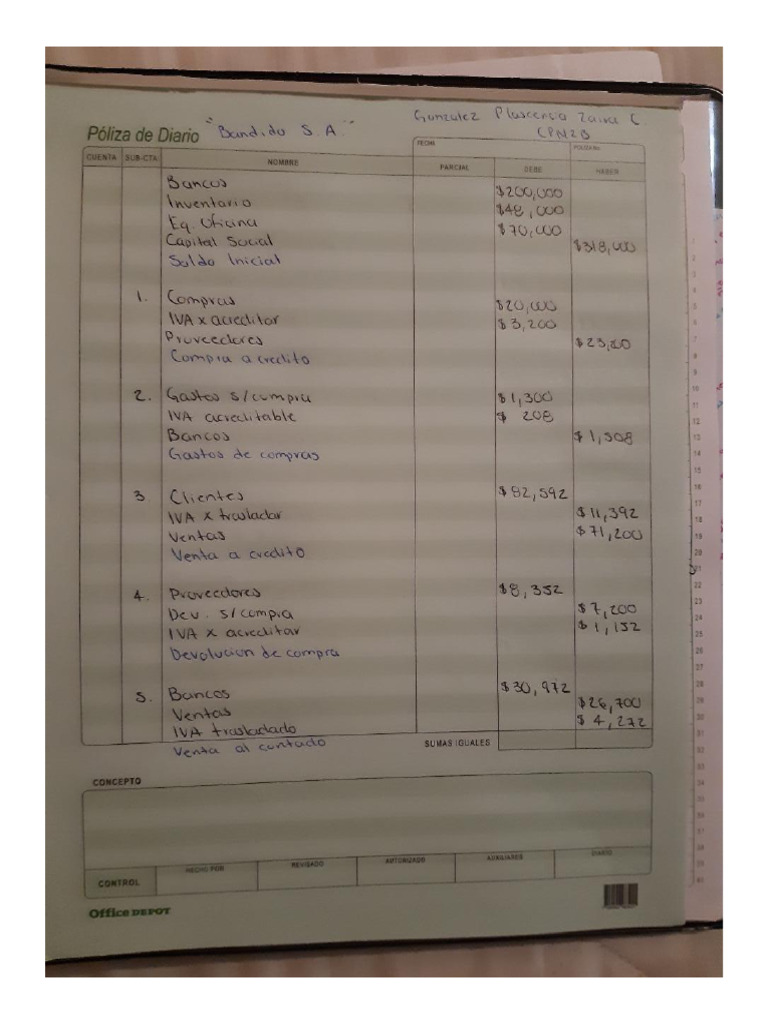 Gonzalez Plascencia Zaira C.
Póliza de Diario "Bandido S.A."
CPN2B
FECHA
CUENTA SUB-CTA NOMBRE PARCIAL DEBE HABER
Bancos $200,000
Inventario $48,000
Eq. Oficina $70,000
Capital Social $318,000
Saldo Inicial
1. Compras $20,000
IVA x acreditar $3,200
Proveedores $23,200
Compra a credito
2. Gastos s/compra $1,300
IVA acreditable $ 208
Bancos $1,508
Gastos de compras
3. Clientes $82,592
IVA x trasladar $11,392
Ventas $71,200
Venta a credito
4. Proveedores $8,352
Dev. s/compra $7,200
IVA x acreditar $1,152
Devolucion de compra
5. Bancos $30,972
Ventas $26,700
IVA trasladado $4,272
Venta al contado
SUMAS IGUALES
CONCEPTO
CONTROL HECHO POR REVISADO AUTORIZADO AUXILIARES DIARIO
Office DEPOT